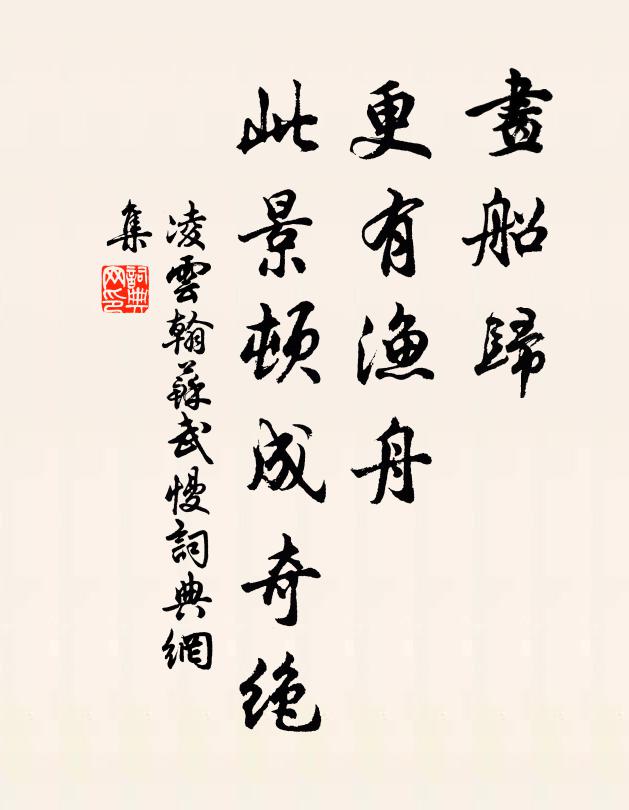 畫船歸
更有漁舟
此景頓成奇絶
凌雲翰蘇武慢詞典網
集
詞典
网印